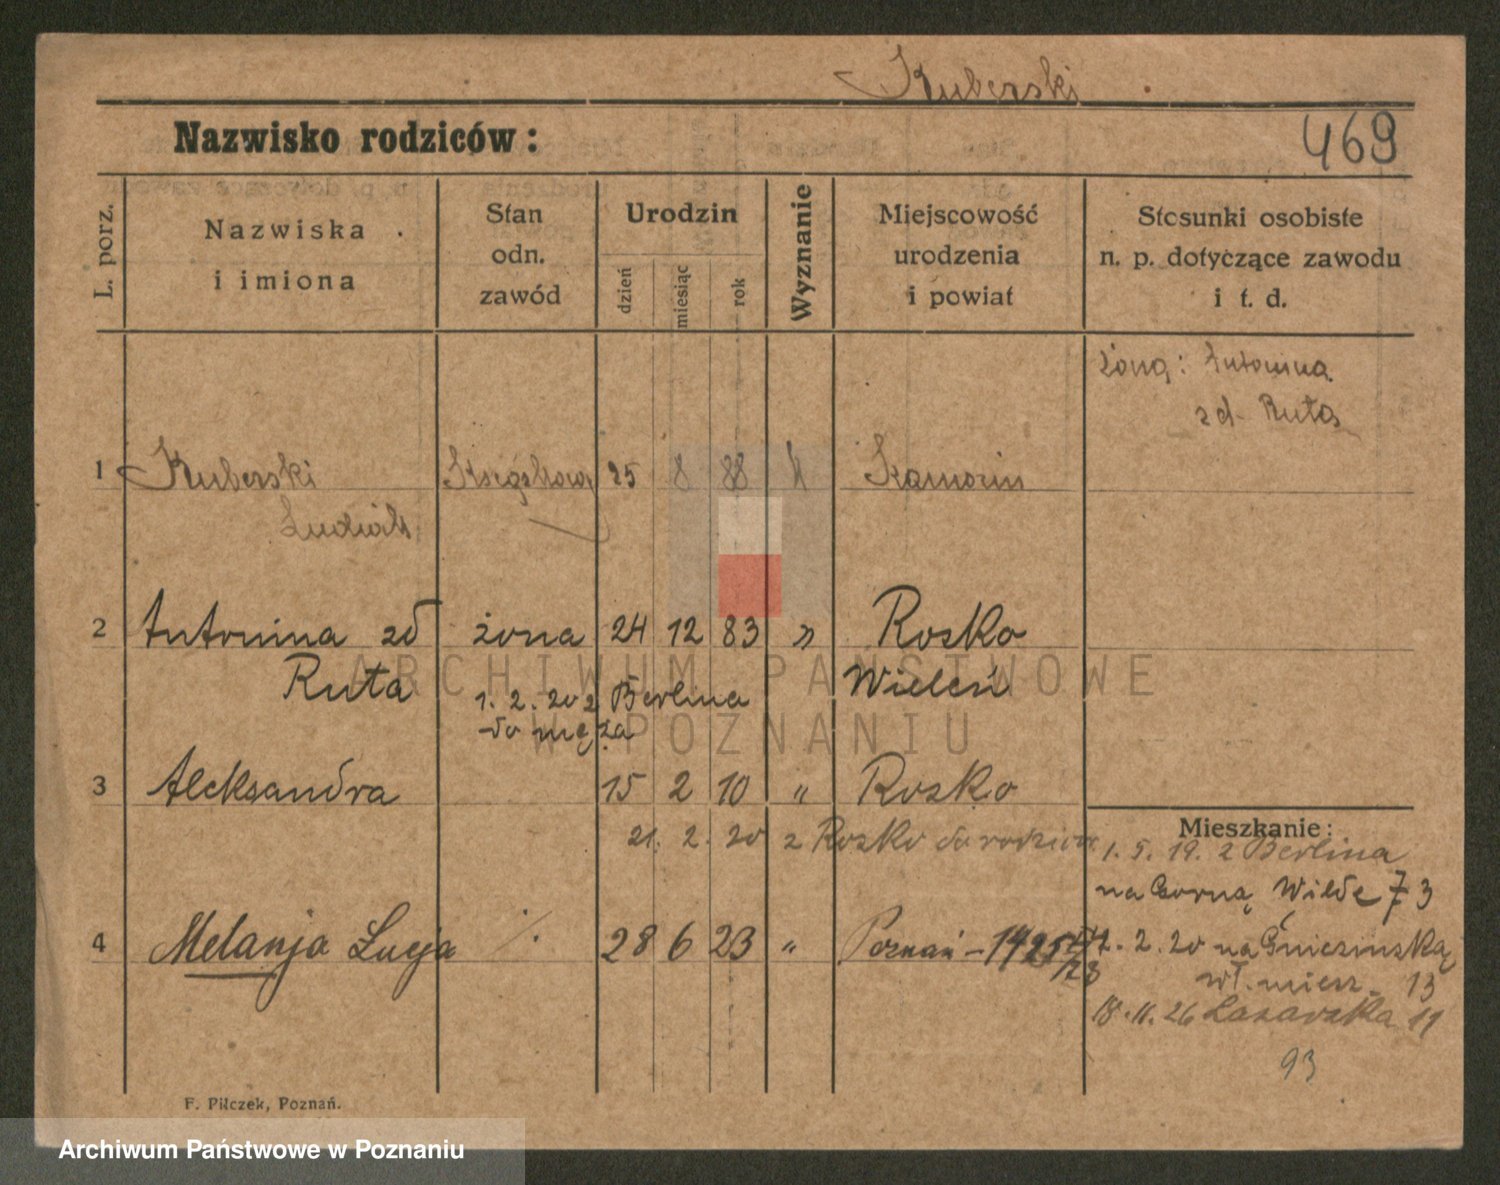 Kuberski
Nazwisko rodziców:
469
L. porz.
Nazwiska
i imiona
Stan
odn.
zawód
Urodzin
dzień
miesiąc
rok
Wyznanie
Miejscowość
urodzenia
i powiat
Stosunki osobiste
n. p. dotyczące zawodu
i t. d.
żoną: Antonina
zd. Ruta
1 Kuberski 25 8 88 k
Ludwik
2 Antonina zd żona 24 12 83 » Rosko
Ruta Wieleń
1. 2. 20 z Berlina
do męża
3 Aleksandra 15 2 10 " Rosko
21. 2. 20 z Rosko do rodziców
Mieszkanie:
1. 5. 19. z Berlina
na Górną Wildę 73
4 Melanja Lucja ·/. 28 6 23 " Poznań – 1425/23
2. 20 na Gnieźnieńską
wł. miesz. 13
18. 11. 26 Łazarska 11
93
F. Pilczek, Poznań.
ARCHIWUM PAŃSTWOWE
W POZNANIU
Archiwum Państwowe w Poznaniu